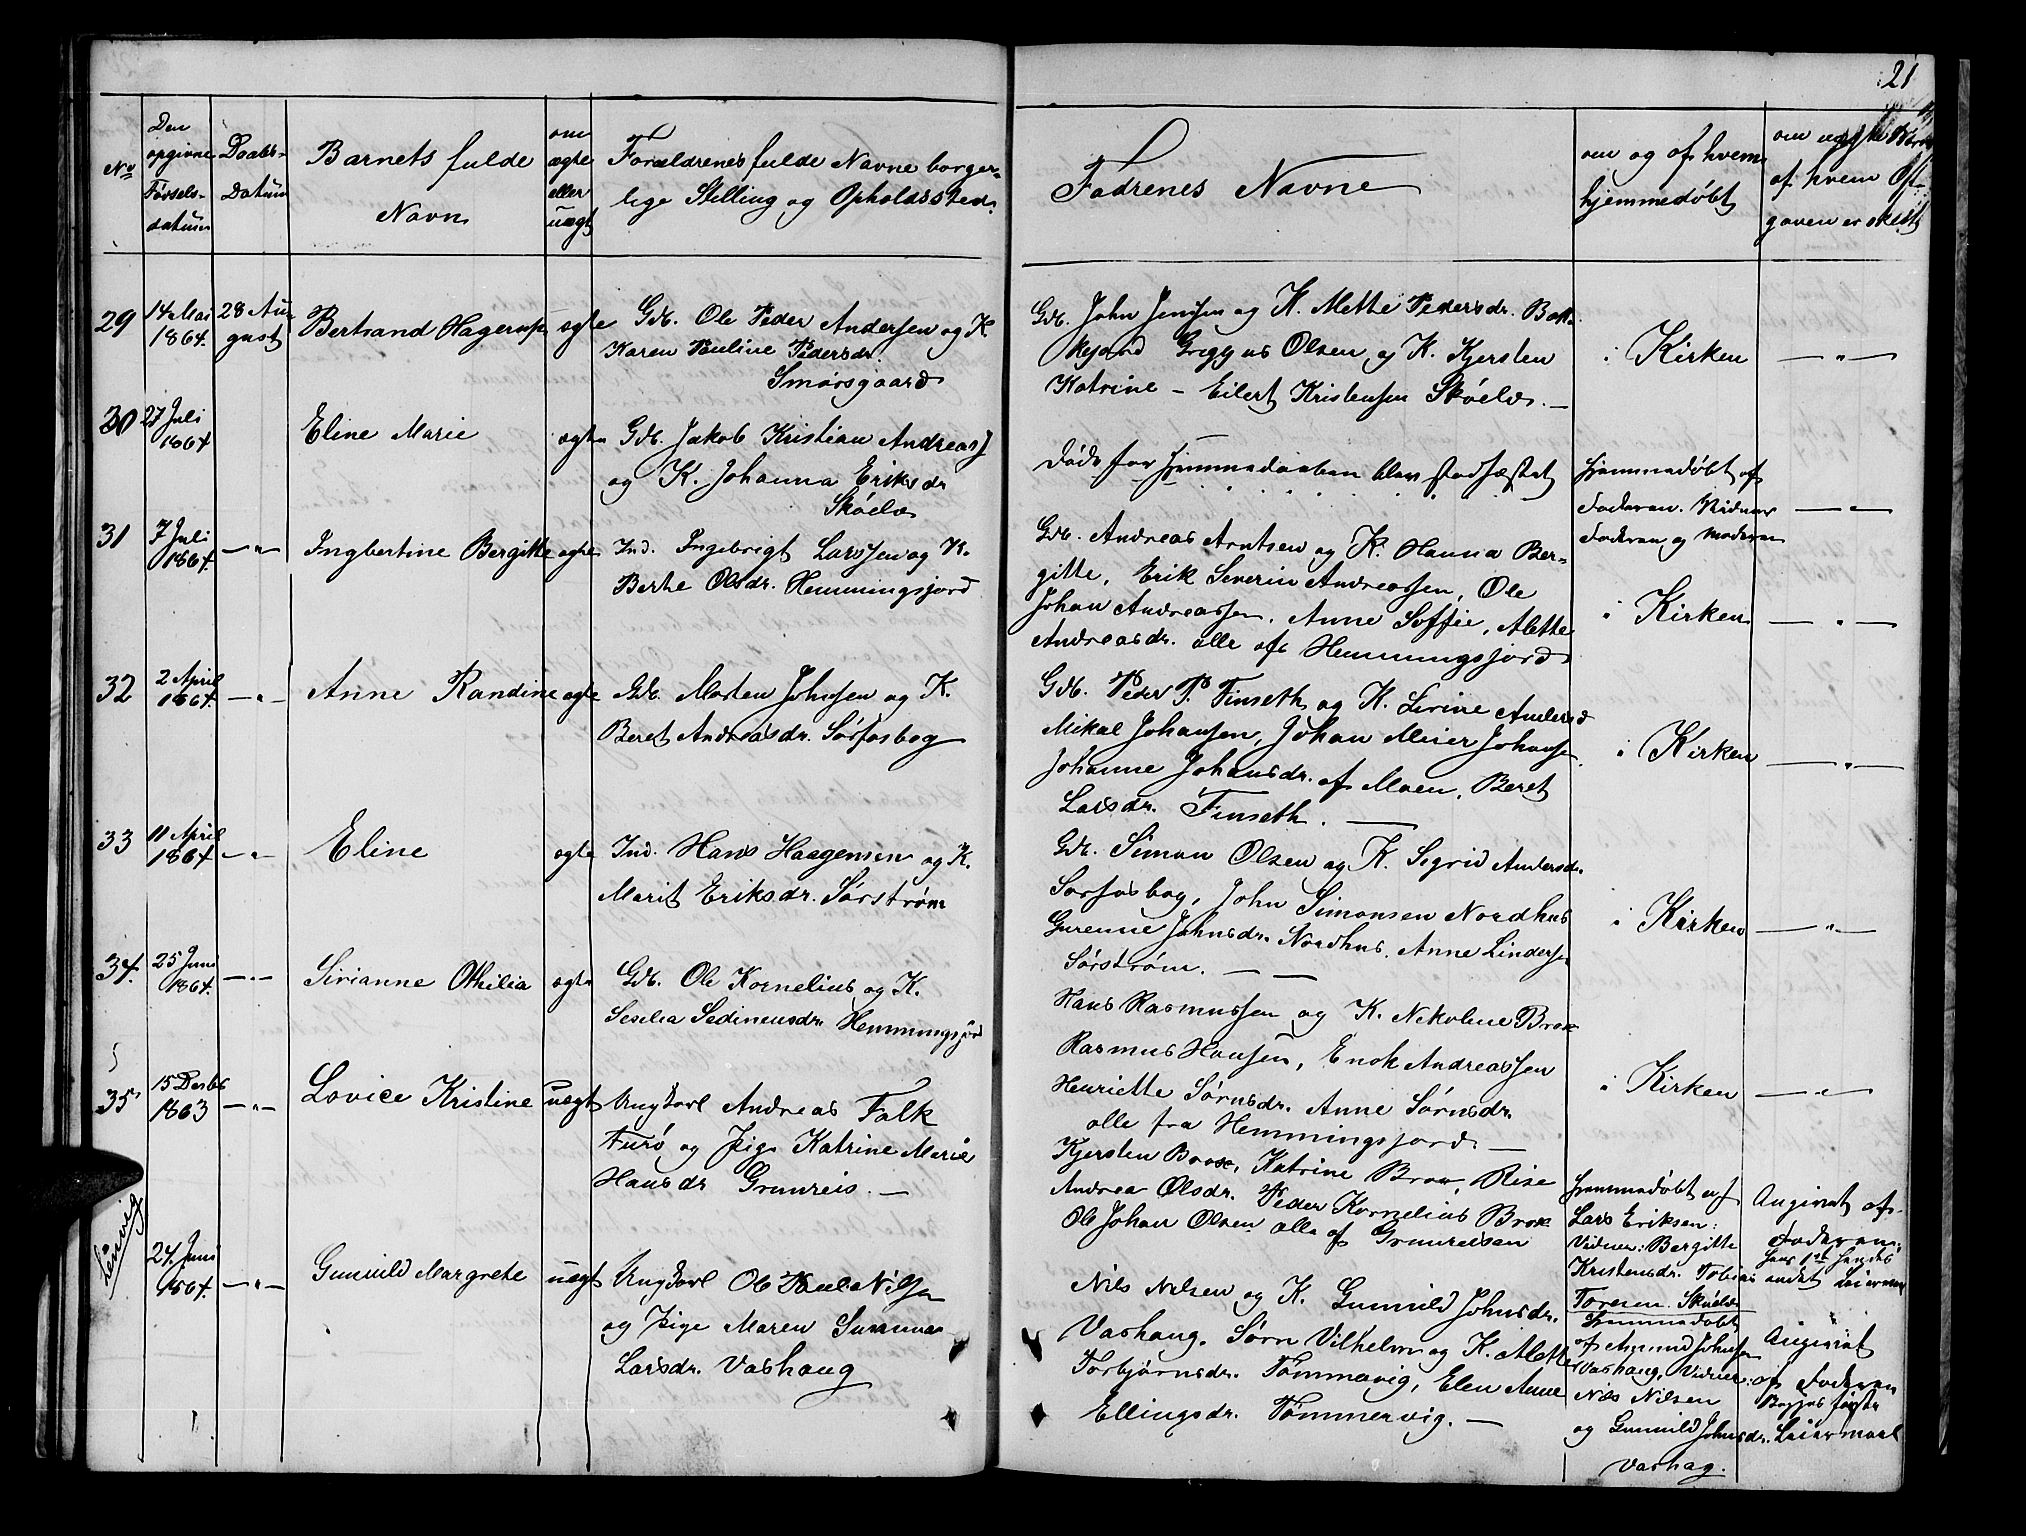 21
No
Den opgivne Fødsels-datum
Daabs-Datum
Barnets fulde Navn
om ægte eller uægte
Forældrenes fulde Navne borger-
lige Stilling og Opholdssted.
Fadrenes Navne
om og af hvem
hjemmedøbt
om uægte
af hvem Op-
gaven er skeet
29
14 Mai
1864.
28 Au-
gust
Bertrand Hagerup
ægte
Gdb. Ole Peder Andersen og K.
Karen Pauline Pedersdr.
Smørsgaard
Gdb. John Jensen og K. Mette Pedersdr. Bak-
kejord Gregus Olsen og K. Kjersten
Katrine - Eilert Kristensen Skøelv. -
i Kirken
— " —
30
27 Juli
1864
Eline Marie
ægte
Gdb. Jakob Kristian Andreas
og K. Johanna Eriksdr
Skøelv
Døde før Hjemmedaaben blev stadfæstet
Hjemmedøbt af
Faderen. Vidner
Faderen og Moderen
— " —
31
7 Juli
1864.
— " —
Ingbertine Bergitte
ægte
Ind. Ingebrigt Larssen og K.
Berthe Olsdr. Hemmingsjord
Gdb. Andreas Arntsen og K. Hanna Ber-
gitte, Erik Severin Andreassen, Ole
Johan Andreassen, Anne Soffie, Alette
Andreasdr. alle af Hemmingsjord
i Kirken
— " —
32
2 April
1864.
— " —
Anne Randine
ægte
Gdb. Morten Johnsen og K.
Beret Andreasdr. Sørfosbog
Gdb. Peder P. Finseth og K. Sirine Andersd
Mikal Johansen, Johan Meier Johansen
Johanne Johansdr. af Moen, Beret
Larsdr. Finseth. —
i Kirken
— " —
33
11 April
1864.
— " —
Eline
ægte
Ind. Hans Haagensen og K.
Marit Eriksdr. Sørstrøm
Gdb. Simon Olsen og K. Sigrid Andersdr.
Sørfosbog, John Simonsen Nordhus
Gurenne Johnsdr. Nordhus, Anne Lindersen
Sørstrøm. — —
i Kirken
— " —
34.
25 Juni
1864.
— " —
Sirianne Othilia
ægte
Gdb. Ole Kornelius og K.
Seselia Sedineusdr. Hemmingsjord
Hans Rasmussen og K. Nikoline Brox
Rasmus Hansen, Enok Andreassen
Henriette Sørnsdr. Anne Sørnsdr.
alle fra Hemmingsjord. —
i Kirken
— " —
35
15 Decbr
1863
— " —
Lovice Kristine
uægte
Ungkarl Andreas Falk
Furø og Pige Katrine Marie
Hansdr Grunreis. —
Kjersten Brox, Katrine Brox, Rise
Andrea Olsdr. Peder Kornelius Brox
Ole Johan Olsen alle af Grunreisen
Hjemmedøbt af
Lars Eriksen:
Vidner: Bergitte
Kristensdr. Tobias
Toresen. Skøelv
Angivet af
Faderen:
hans 1ste hendes
andet Leiermaal
Lenvig
24 Juni
1864.
— " —
Gunnild Margrete
uægt
Ungkarl Ole Paul Nilsen
og Pige Maren Susanna
Larsdr. Vashaug
Nils Nilsen og K. Gunnild Johnsdr.
Vashaug. Sørn Vilhelm og K. Alette
Torbjørnsdr. Tømmervig, Elen Anne
Ellingsdr. Tømmervig. —
Hjemmedøbt
af Amund Johnsen
Vashaug, Vidner:
Nils Nilsen
og Gunnild Johnsdr.
Vashag.
Angivet
af Faderen
Begges første
Leiermaal